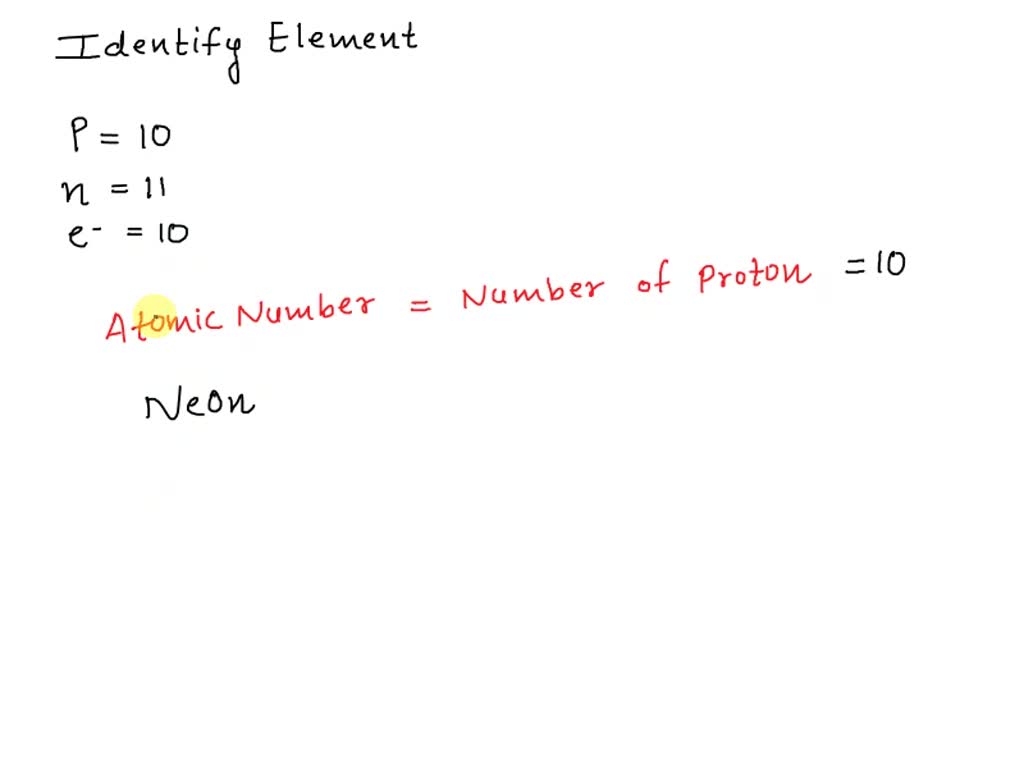 Identify Element
P = 10
n = 11
e- = 10
Atomic Number = Number of Proton = 10
Neon